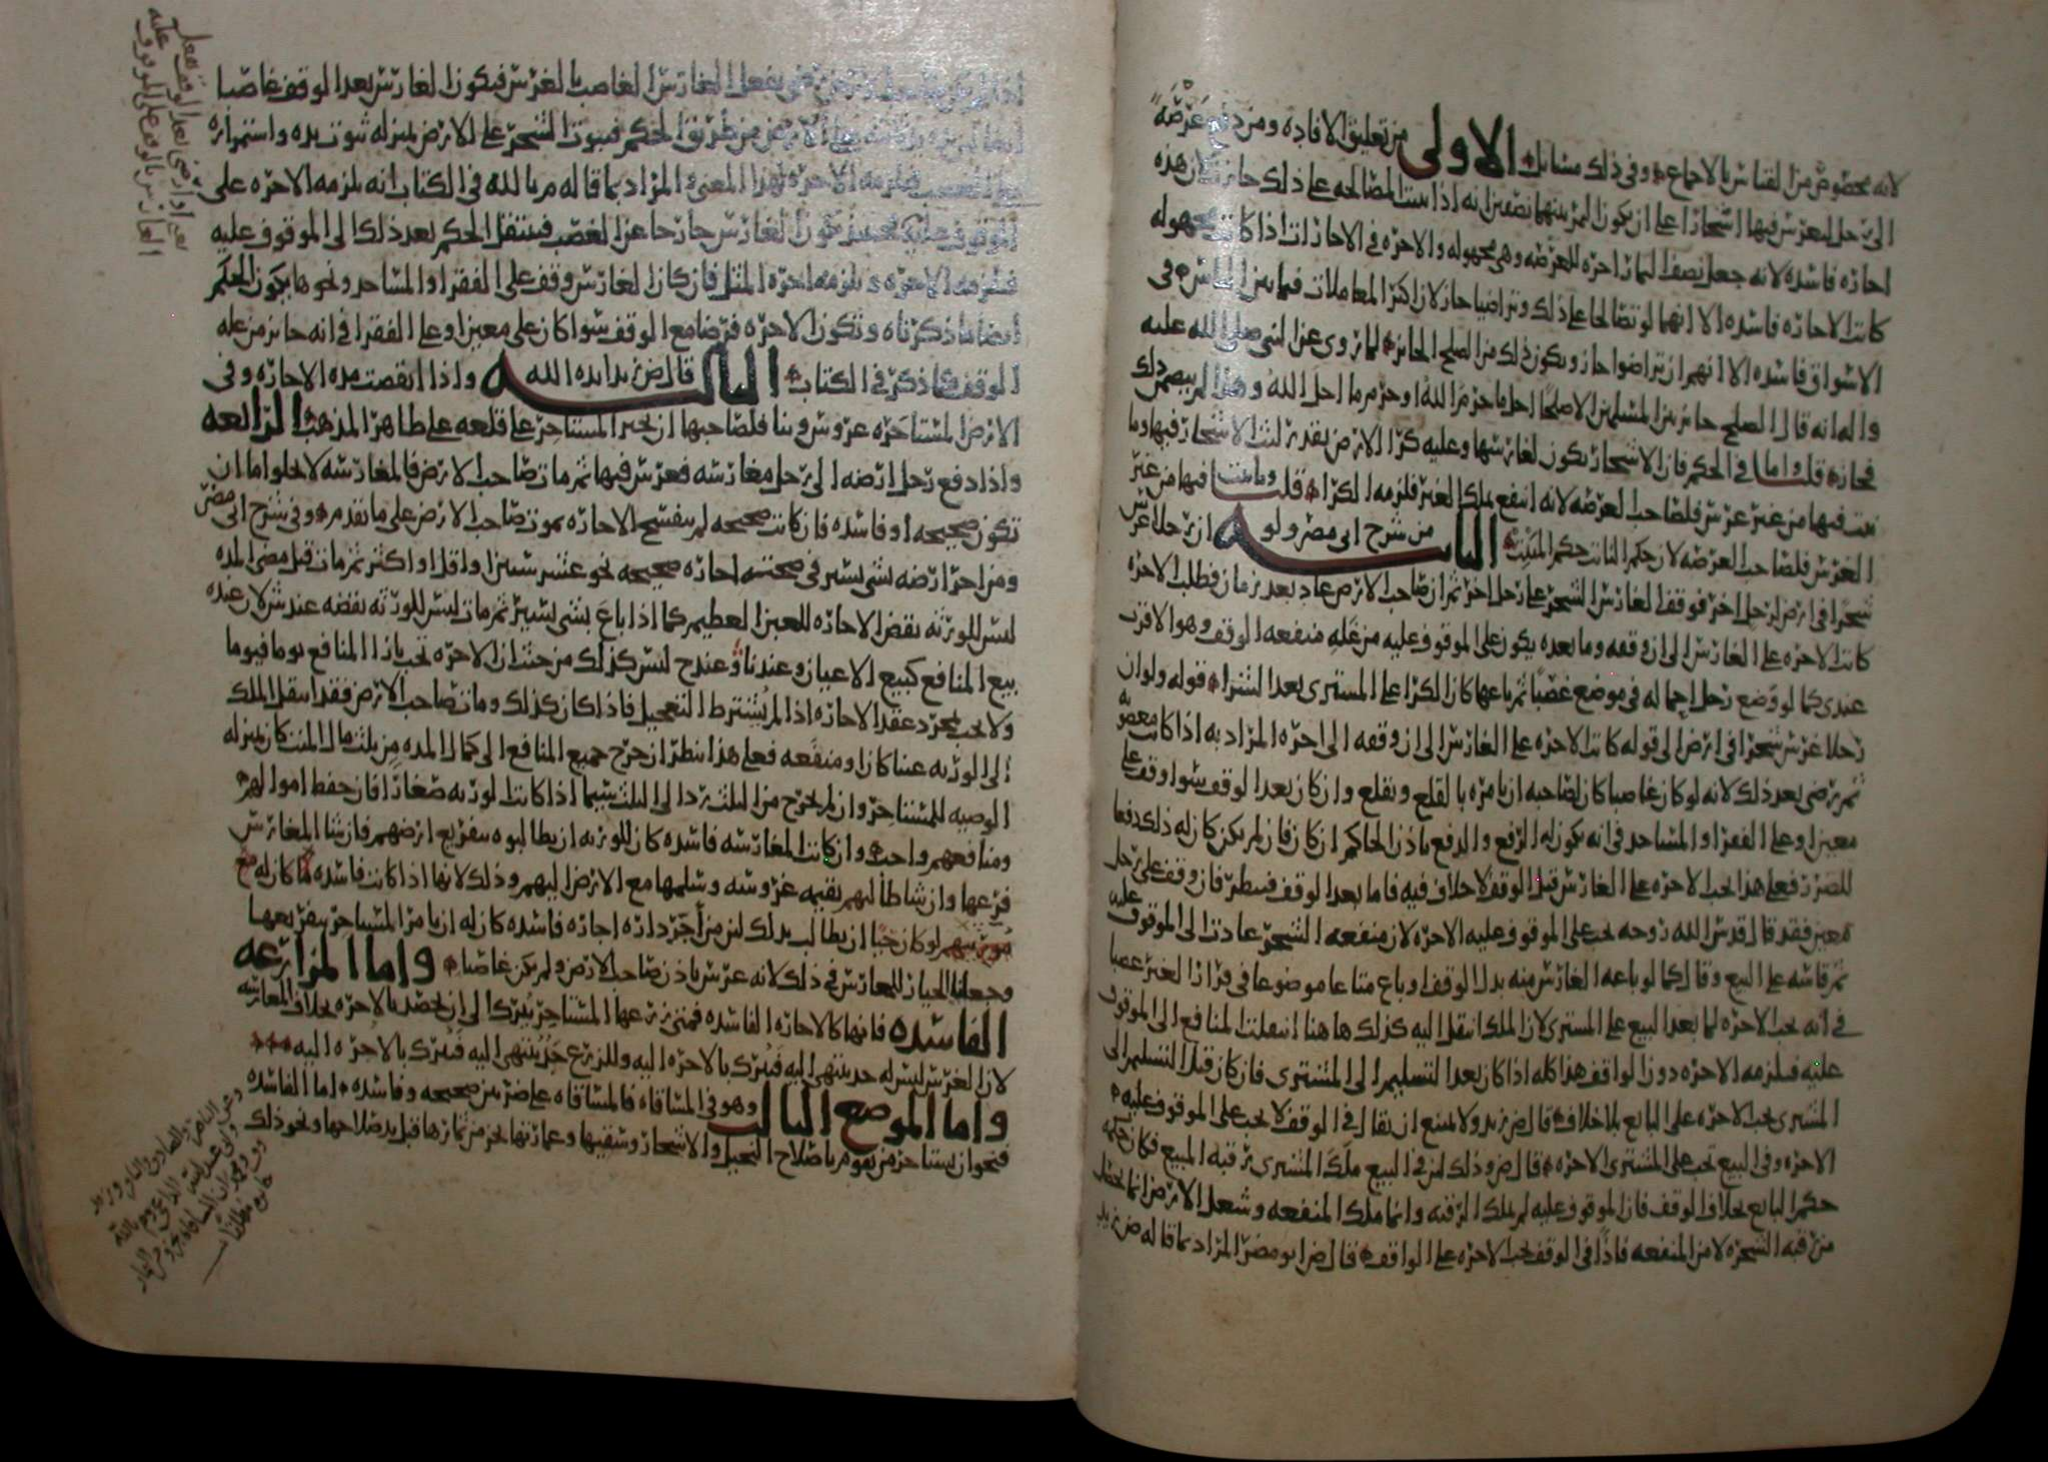 لانه مخصوص من القياس بالاجماع وفي ذلك مسائل الاولى من تعليق الافاده ومن دفع عرصة
الى رجل ليغرس فيها اشجارا على ان يكون الثمر بينهما نصفين انه اذا بينت المصالحه على ذلك جاز لان هذه
اجازه فاسده لانه جعل نصف الثمار اجره للعرصه وهي مجهوله والاجره في الاجارات اذا كانت مجهوله
كانت الاجاره فاسده الا انهما لو تصالحا على ذلك وتراضيا جاز لان اكثر المعاملات فيما بين الناس في
الاسواق فاسده الا انهم ان تراضوا جاز ويكون ذلك من الصلح الجائز لما روي عن النبي صلى الله عليه
واله انه قال الصلح جائز بين المسلمين الا صلحا احل ما حرم الله او حرم ما احل الله وهذا لم يتضمن ذلك
فجاز قلت واما في الحكم فان الاشجار يكون لغارسها وعليه كرا الارض بقدر لبث الاشجار فيها وما
نبت فيها من غير غرس فلصاحب العرصه لانه انتفع بملك الغير فلزمه الكرا قلت وما نبت فيها من غير
الغرس فلصاحب العرصه لان حكم النابت حكم المنبت الثانيه من شرح ابي مضر ولو ان رجلا غرس
شجرا في ارض لرجل اخر فوقف الغارس الشجر على رجل اخر ثم ان صاحب الارض عاد بعد زمان فطلب الاجره
كانت الاجره على الغارس الى ان وقفه وما بعده يكون على الموقوف عليه من غله منفعه الوقف وهو الاقرب
عندي كما لو وضع رجل اجمالا له في موضع غصبا ثم باعها كان الكرا على المستري بعد الشرا قوله ولو ان
رجلا غرس شجرا في ارض الى قوله كانت الاجره على الغارس الى ان وقفه الى اخره المراد به اذا كانت مغصوبه
ثم رضي بعد ذلك لانه لو كان غاصبا كان لصاحبه ان يامره بالقلع ويقلع وان كان بعد الوقف سوا وقف على
معين او على الفقرا او المساجد في انه يكون له الرفع والدفع باذن الحاكم ان كان فان لم يكن كان له ذلك دفعا
للضرر فعلى هذا تجب الاجره على الغارس قبل الوقف لا خلاف فيه فاما بعد الوقف فينظر فان وقف على رجل
معين فقد قال قدس الله روحه تجب على الموقوف عليه الاجره لان منفعه الشجر عادت الى الموقوف عليه
ثم قاسه على البيع وقال كما لو باعه الغارس منه بدل الوقف او باع متاعا موضوعا في قرار الغير غصبا
في انه تجب الاجره لما بعد البيع على المستري لان الملك انتقل اليه كذلك هاهنا انتقلت المنافع الى الموقوف
عليه فيلزمه الاجره دون الواقف هذا كله اذا كان بعد التسليم الى المشتري فان كان قبل التسليم الى
المشتري تجب الاجره على البائع بلا خلاف قال ض زيد ولا يمتنع ان يقال في الوقف لا تجب على الموقوف عليه
الاجره وفي البيع تجب على المشتري الاجره قال ض وذلك لان في البيع ملك المشتري رقبه المبيع فكان حكمه
حكم البائع بخلاف الوقف فان الموقوف عليه لم يملك الرقبه وانما ملك المنفعه وشغل الارض انما يحصل
من رقبه الشجره لا من المنفعه فاذا في الوقف تجب الاجره على الواقف قال ض ابو مضر المراد بما قاله ض زيد
بفعل الغارس الغاصب بالغرس فيكون الغارس بعد الوقف غاصبا
الارض من طريق الحكم فثبوت الشجر على الارض بمنزله ثبوت يده واستمراره
فيلزمه الاجره لهذا المعنى المراد بما قاله م بالله في الكتاب انه يلزمه الاجره على
الموقوف عليه يكون الغارس خارجا عن الغصب فينتقل الحكم بعد ذلك الى الموقوف عليه
فيلزمه الاجره ويلزمه اجره المثل فان كان الغارس وقف على الفقرا او المساجد ونحوها يكون الحكم
ايضا ما ذكرناه وتكون الاجره فرضا مع الوقف سوا كان على معين او على الفقرا في انه جائز من غله
الوقف كما ذكر في الكتاب الثالثه قال ض زيد ايده الله واذا انقضت مده الاجاره وفي
الارض المستاجره غروس وبنا فلصاحبها ان يخير المستاجر على قلعه على ظاهر المذهب الرابعه
واذا دفع رجل ارضه الى رجل مغارسه فغرس فيها ثم مات صاحب الارض فالمغارسه لا تخلوا اما ان
تكون صحيحه او فاسده فان كانت صحيحه لم ينفسخ الاجاره بموت صاحب الارض على ما تقدم وفي شرح ابي مضر
ومن اجر ارضه بشي يسير في صحته اجاره صحيحه نحو عشر سنين او اقل او اكثر ثم مات قبل مضي المده
ليس للورثه نقض الاجاره للغبن العظيم كما اذا باع بشي يسير ثم مات ليس للورثه نقضه عند ش لان عنده
بيع المنافع كبيع الاعيان وعندنا وعند ح ليس كذلك من حيث ان الاجره تجب باذا المنافع يوما فيوما
ولا تجب بمجرد عقد الاجاره اذا لم يشترط التعجيل فاذا كان كذلك ومات صاحب الارض فقد انتقل الملك
الى الورثه عينا كان او منفعه فعلى هذا ينظر ان خرج جميع المنافع الى كمال المده من ثلث مال الميت كان بمنزله
الوصيه للمستاجر وان لم يخرج من الثلث يرد الى الثلث سيما اذا كانت الورثه صغارا فان حفظ اموالهم
ومنافعهم واجب وان كانت المغارسه فاسده كان للورثه ان يطالبوه بتفريغ ارضهم فان شا المغارس
فرغها وان شا طالبهم بقيمه غروسه وسلمها مع الارض اليهم وذلك لانها اذا كانت فاسده كما كان له مع
مورثهم لو كان حيا ان يطالب بذلك لان من اجر داره اجاره فاسده كان له ان يامر المستاجر بتفريغها
وجعلنا الخيار للمغارس في ذلك لانه غرس باذن صاحب الارض ولم يكن غاصبا واما المزارعه
الفاسده فانها كالاجاره الفاسده فمتى زرعها المستاجر يترك الى ان يحصد بالاجره بخلاف المغارسه
لان الغرس ليس له حد ينتهي اليه فيترك بالاجره اليه وللزرع حد ينتهي اليه فيترك بالاجره اليه
واما الموضع الثالث وهو في المساقاه فالمساقاه على ضربين صحيحه وفاسده اما الفاسده
فنحو ان يستاجر من يقوم باصلاح النخيل والاشجار وسقيها وعمارتها بجز من ثمارها قبل بدو صلاحها ونحو ذلك